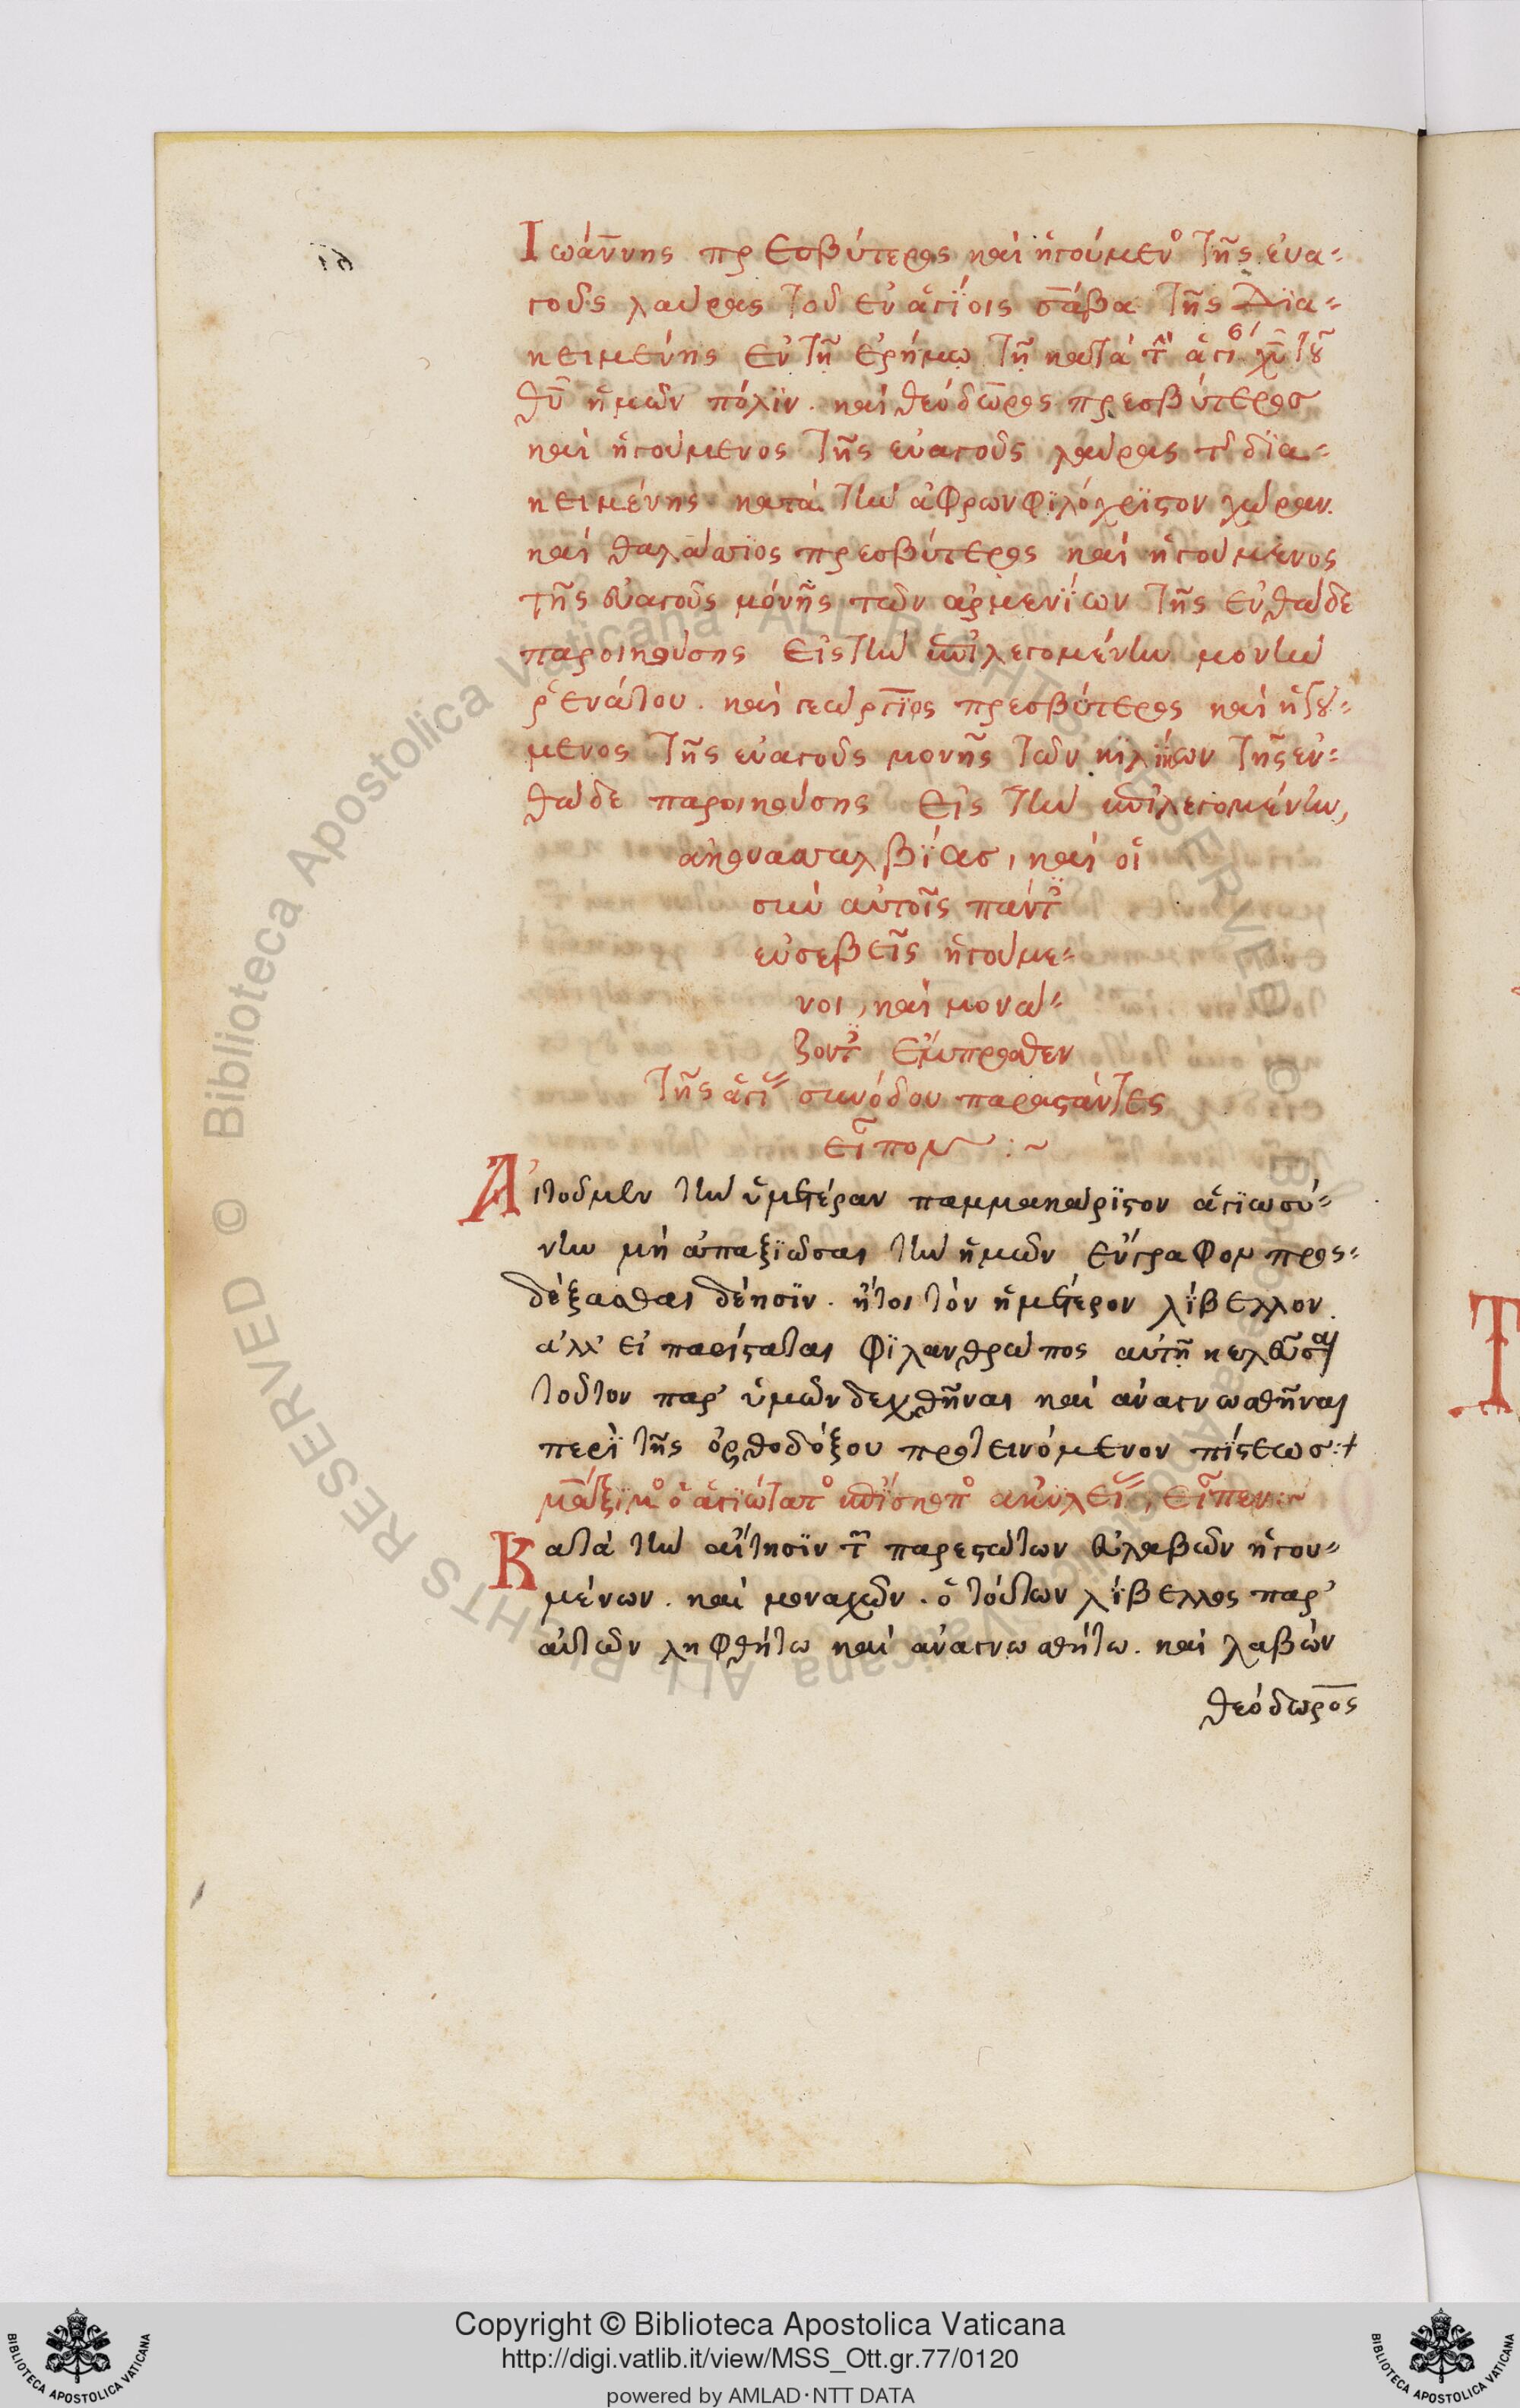 Ἰωάννης πρεσβύτερος καὶ ἡγούμεν° τῆς εὐα-
γοῦς λαύρας τοῦ ἐν ἁγίοις σάβα τῆς δια-
κειμένης ἐν τῇ ἐρήμῳ τῇ κατὰ τ ἁγί χῦ τοῦ
θῦ ἡμῶν πόλιν. καὶ θεόδωρος πρεσβύτερος
καὶ ἡγούμενος τῆς εὐαγοῦς λαύρας τ δια-
κειμένης κατὰ τὴν ἄφρων φιλόχριστον χώραν.
καὶ θαλάσσιος πρεσβύτερος καὶ ἡγούμενος
τῆς εὐαγοῦς μόνῆς τῶν ἀρμενίων τῆς ἐνθάδε
παροικούσης εἰς τὴν ἐπιλεγομένην μονὴν
ῥενάτου. καὶ γεώργιος πρεσβύτερος καὶ ἡγού-
μενος τῆς εὐαγοῦς μονῆς τῶν κιλίκων τῆς ἐν-
θάδε παροικούσης εἰς τὴν ἐπιλεγομένην,
ἀκουασαλβίας, καὶ οἱ
σὺν αὐτοῖς πάντ
εὐσεβεῖς ἡγούμε-
νοι, καὶ μονά-
ζοντ ἔμπροσθεν
τῆς ἁγί συνόδου παραστάντες
εἶπον :~
Αἰτοῦμεν τὴν ὑμετέραν παμμακάριστον ἁγιωσύ-
νην μὴ ἀπαξιῶσαι τὴν ἡμῶν ἔγγραφον προσ-
δέξασθαι δέησιν. ἤτοι τὸν ἡμέτερον λίβελλον.
ἀλλ' εἰ παρίσταται φιλανθρώπος αὐτῇ κελεῦσαι
τοῦτον παρ' ὑμῶν δεχθῆναι καὶ ἀναγνωσθῆναι
περὶ τῆς ὀρθοδόξου προτεινόμενον πίστεως :+
μάξιμ° ὁ ἁγιώτατ° ἐπίσκοπ° ἀκυλεί, εἶπεν :~
Κατὰ τὴν αἴτησιν τ παρεστώτων εὐλαβῶν ἡγου-
μένων. καὶ μοναχῶν. ὁ τούτων λίβελλος παρ'
αὐτῶν ληφθήτω καὶ ἀναγνωσθήτω. καὶ λαβὼν
θεόδωρος
Copyright © Biblioteca Apostolica Vaticana
http://digi.vatlib.it/view/MSS_Ott.gr.77/0120
powered by AMLAD·NTT DATA